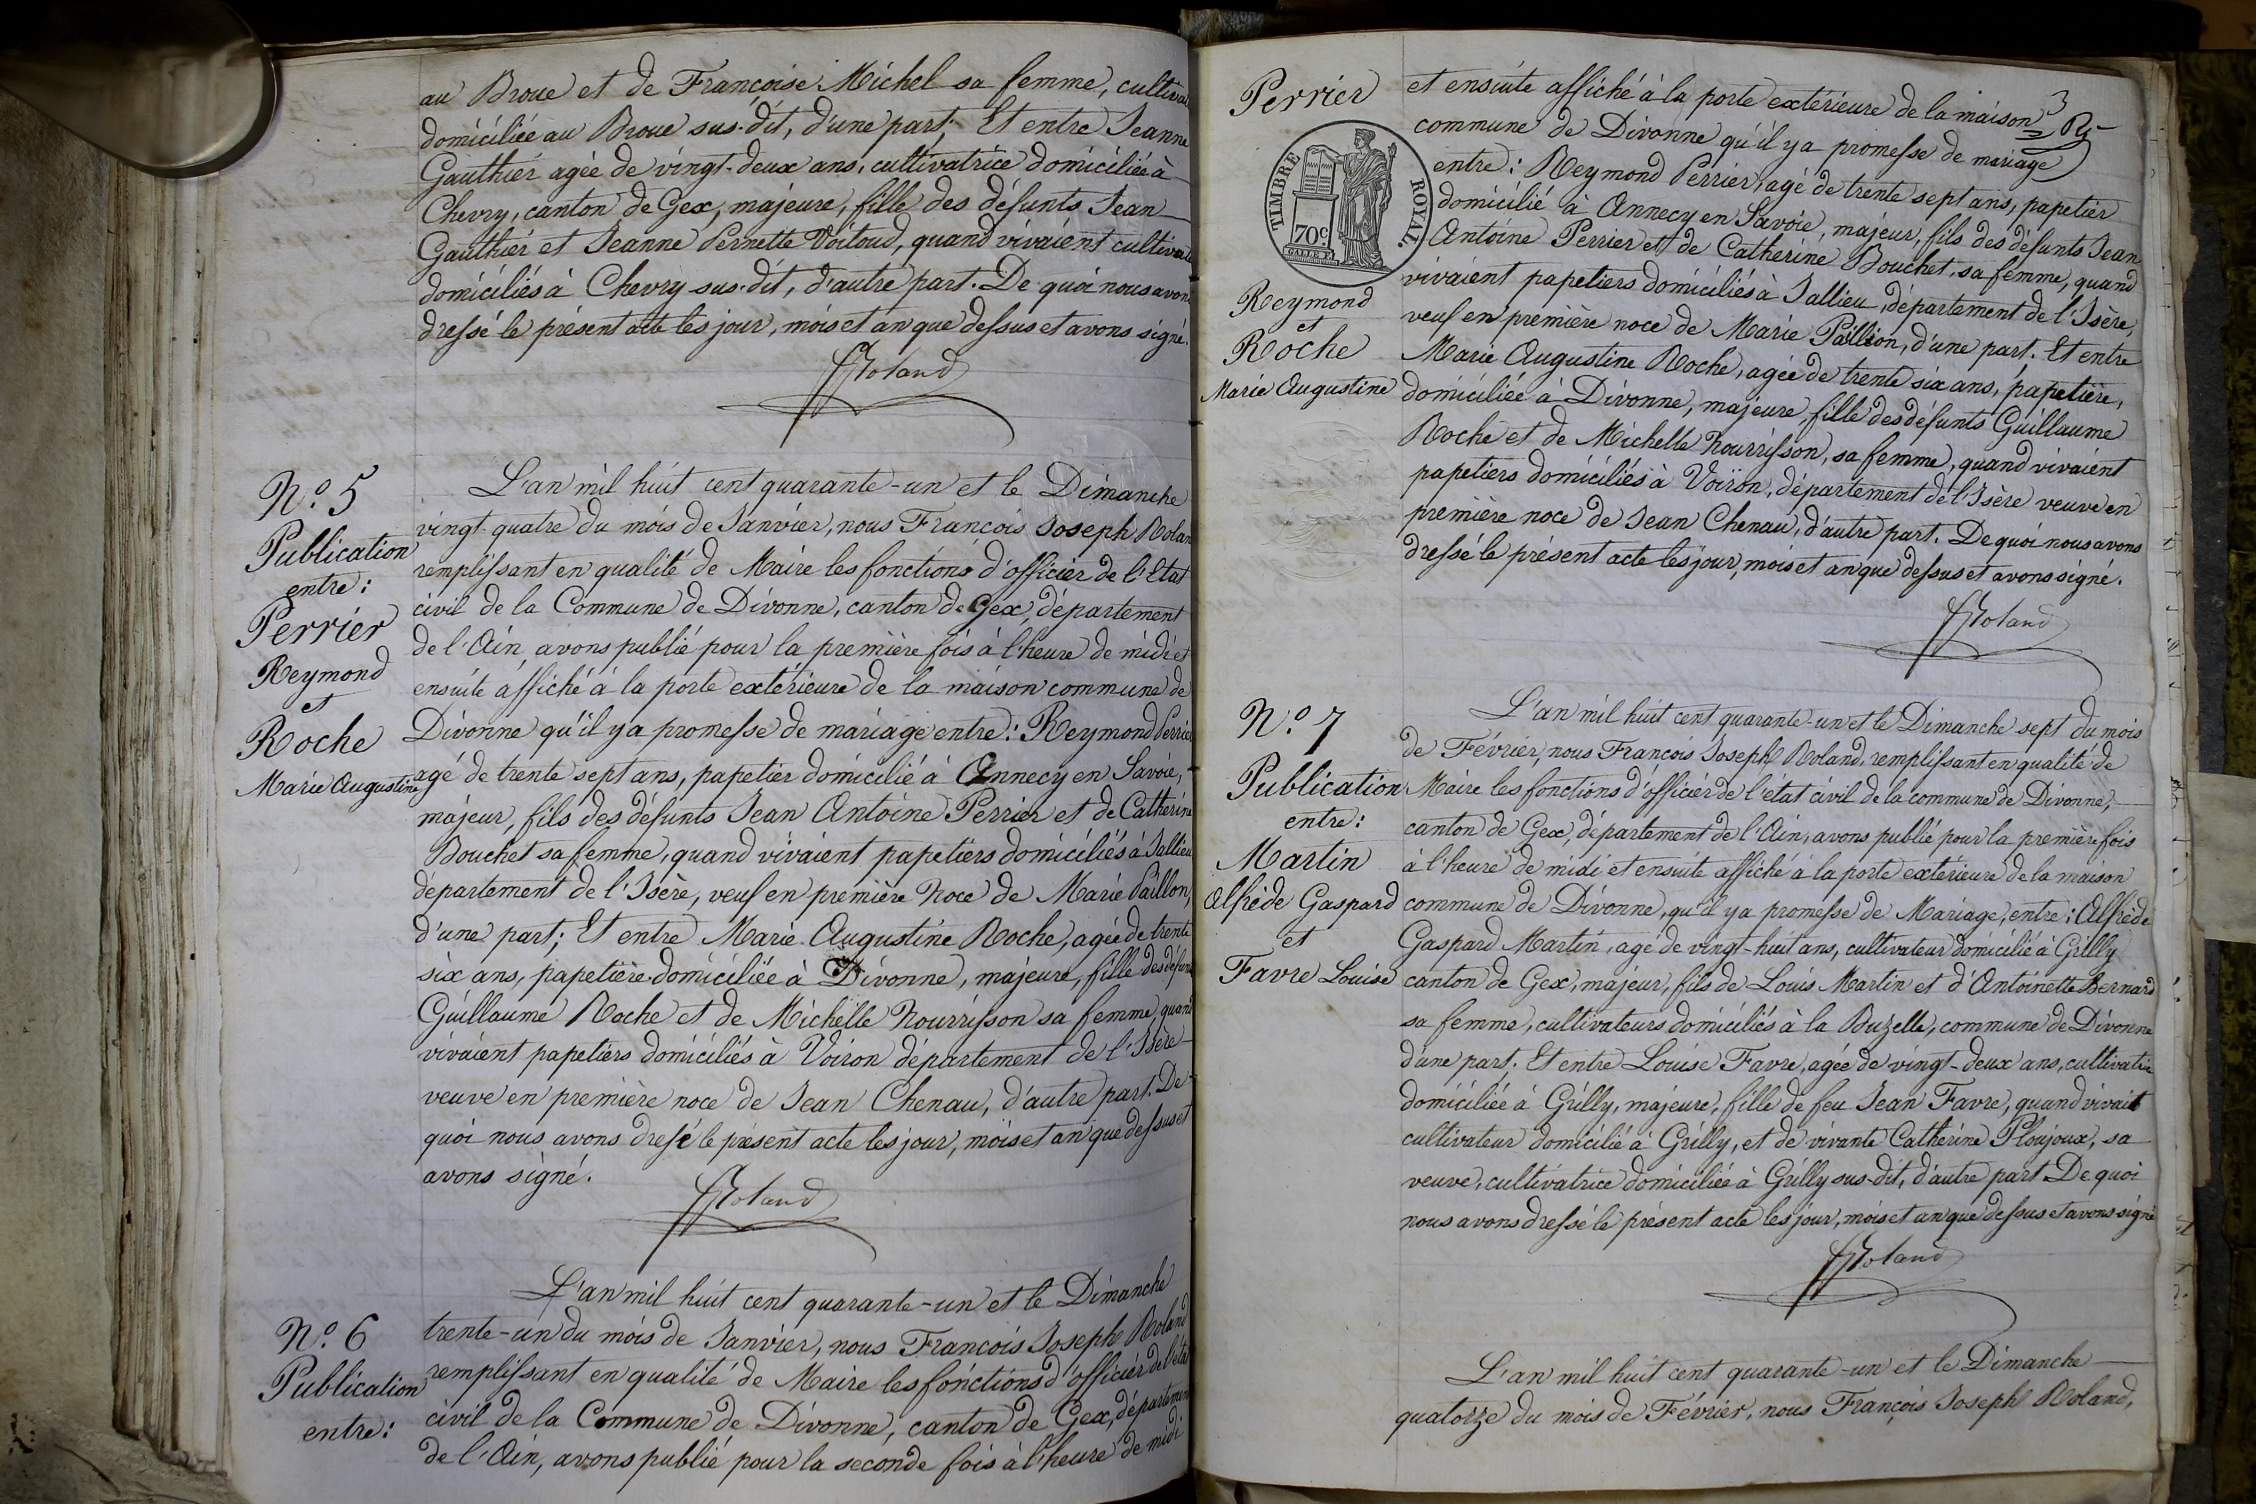 au Broue et de Françoise Michel sa femme, cultiva
domiciliée au Broue sus-dit, d'une part; Et entre Jeanne
Gauthier agée de vingt-deux ans, cultivatrice domiciliée à
Chevry, canton de Gex, majeure, fille des défunts Jean
Gauthier et Jeanne Pernette Voitoud, quand vivaient cultivate
domiciliés à Chevry sus-dit, d'autre part. De quoi nous avons
dressé le présent acte les jour, mois et an que dessus et avons signé.
FRoland
N.º 5
Publication
entre:
Perrier
Reymond
et
Roche
Marie Augustine
L'an mil huit cent quarante-un et le Dimanche
vingt-quatre du mois de Janvier, nous François Joseph Rolan
remplissant en qualité de Maire les fonctions d'officier de l'Etat
civil de la Commune de Divonne, canton de Gex, département
de l'Ain, avons publié pour la première fois à l'heure de midi et
ensuite affiché à la porte extérieure de la maison commune de
Divonne qu'il y a promesse de mariage entre: Reymond Perrier
agé de trente sept ans, papetier domicilié à Annecy en Savoie,
majeur, fils des défunts Jean Antoine Perrier et de Catherine
Bouchet sa femme, quand vivaient papetiers domiciliés à Jallieu
département de l'Isère, veuf en première noce de Marie Paillon,
d'une part; Et entre Marie Augustine Roche, agée de trente
six ans, papetière domiciliée à Divonne, majeure, fille des défunts
Guillaume Roche et de Michelle Nourrisson sa femme, quand
vivaient papetiers domiciliés à Voiron département de l'Isère
veuve en première noce de Jean Chenau, d'autre part. De
quoi nous avons dressé le présent acte les jour, mois et an que dessus et
avons signé.
FRoland
N.º 6
Publication
entre:
L'an mil huit cent quarante-un et le Dimanche
trente-un du mois de Janvier, nous François Joseph Roland
remplissant en qualité de Maire les fonctions d'officier de l'état
civil de la Commune de Divonne, canton de Gex, département
de l'Ain, avons publié pour la seconde fois à l'heure de midi
3
Perrier
TIMBRE ROYAL
70c
Reymond
et
Roche
Marie Augustine
et ensuite affiché à la porte extérieure de la maison
commune de Divonne qu'il y a promesse de mariage
entre: Reymond Perrier, agé de trente sept ans, papetier
domicilié à Annecy en Savoie, majeur, fils des défunts Jean
Antoine Perrier et de Catherine Bouchet, sa femme, quand
vivaient papetiers domiciliés à Jallieu, département de l'Isère,
veuf en première noce de Marie Paillion, d'une part. Et entre
Marie Augustine Roche, agée de trente six ans, papetière,
domiciliée à Divonne, majeure, fille des défunts Guillaume
Roche et de Michelle Nourrisson, sa femme, quand vivaient
papetiers domiciliés à Voiron, département de l'Isère veuve en
première noce de Jean Chenau, d'autre part. De quoi nous avons
dressé le présent acte les jour, mois et an que dessus et avons signé.
FRoland
N.º 7
Publication
entre:
Martin
Alfrède Gaspard
et
Favre Louise
L'an mil huit cent quarante-un et le Dimanche sept du mois
de Février, nous François Joseph Roland, remplissant en qualité de
Maire les fonctions d'officier de l'état civil de la commune de Divonne,
canton de Gex, département de l'Ain, avons publié pour la première fois
à l'heure de midi et ensuite affiché à la porte extérieure de la maison
commune de Divonne, qu'il y a promesse de Mariage, entre: Alfrède
Gaspard Martin, agé de vingt-huit ans, cultivateur domicilié à Grilly
canton de Gex, majeur, fils de Louis Martin et d'Antoinette Bernard
sa femme, cultivateurs domiciliés à la Buzelle, commune de Divonne
d'une part. Et entre Louise Favre, agée de vingt-deux ans, cultivatric
domiciliée à Grilly, majeure, fille de feu Jean Favre, quand vivait
cultivateur domicilié à Grilly, et de vivante Catherine Ploujoux, sa
veuve, cultivatrice domiciliée à Grilly sus-dit, d'autre part. De quoi
nous avons dressé le présent acte les jour, mois et an que dessus et avons signé
FRoland
L'an mil huit cent quarante-un et le Dimanche
quatorze du mois de Février, nous François Joseph Roland,